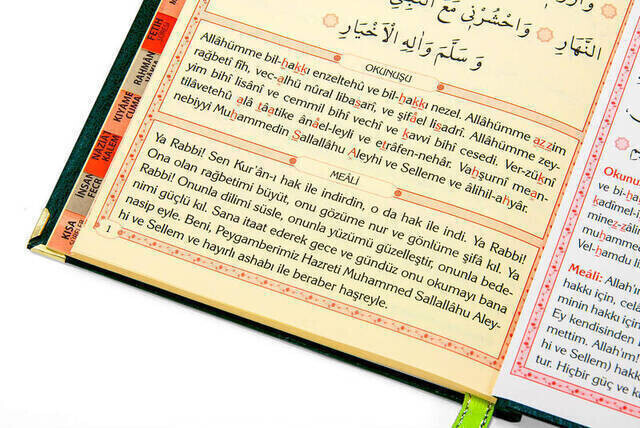 النَّهَارِ وَاحْشُرْنِي مَعَ النَّبِيِّ
وَسَلَّمَ وَاٰلِهِ الْاَخْيَارِ
OKUNUŞU
Allâhümme bil-hakkı enzeltehû ve bil-hakkı nezel. Allâhümme azzim
rağbetî fîh, vec-alhü nûral libasarî, ve şifâel lisadrî. Allâhümme zey-
yim bihî lisânî ve cemmil bihî vechî ve kavvi bihî cesedî. Ver-züknî
tilâvetehû alâ tâatike ânâel-leyli ve etrâfen-nehâr. Vahşurnî mean-
nebiyyi Muhammedin Sallallâhu Aleyhi ve Selleme ve âlihil-ahyâr.
MEÂLİ
Ya Rabbi! Sen Kur'ân-ı hak ile indirdin, o da hak ile indi. Ya Rabbi!
Ona olan rağbetimi büyüt, onu gözüme nur ve gönlüme şifâ kıl. Ya
Rabbi! Onunla dilimi süsle, onunla yüzümü güzelleştir, onunla bede-
nimi güçlü kıl. Sana itaat ederek gece ve gündüz onu okumayı bana
nasip eyle. Beni, Peygamberimiz Hazreti Muhammed Sallallâhu Aley-
hi ve Sellem ve hayırlı ashabı ile beraber haşreyle.
1
FETİH
RAHMAN
KIYAME
CUMA
NAZİAT
KALEM
İNSAN
FECR
KISA
Okunu
ve bi-ha
kadimeli
minez-zâ
muham
Vel-hamdu li
Meâli: Allah'ı
hakkı için, celâ
minin hakkı içi
Ey kendisinden
mettim. Allah'ım!
hi ve Sellem) hakk
tur. Hiçbir güç ve k